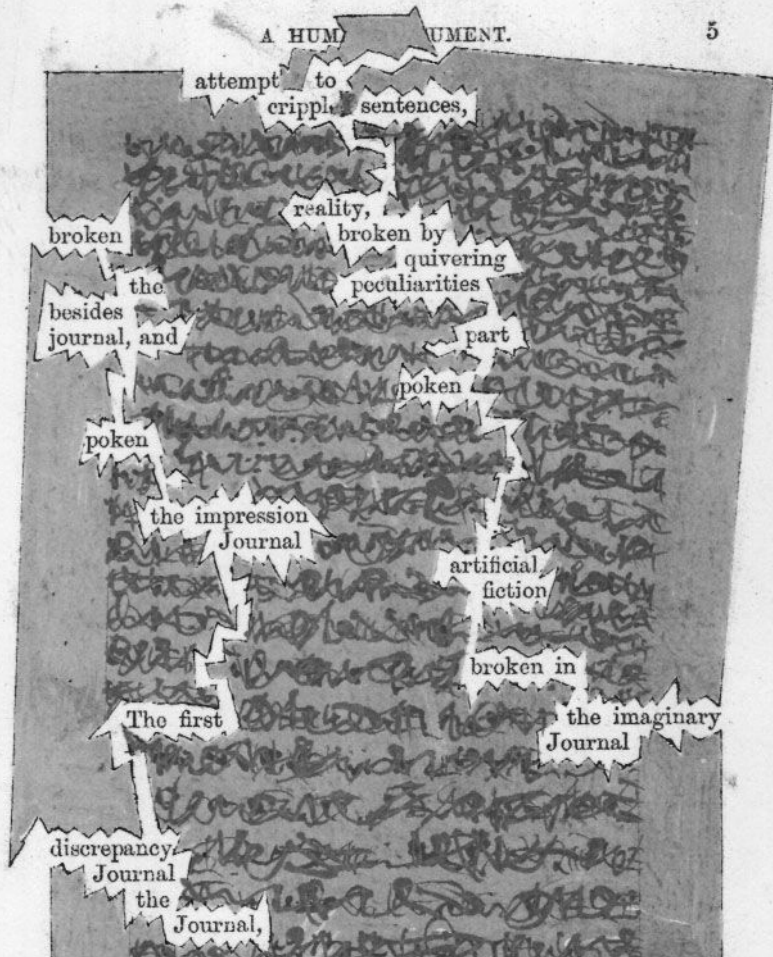 A HUM UMENT. 5
attempt to
cripple sentences,
reality,
broken broken by
quivering
the peculiarities
besides
journal, and part
poken
poken
the impression
Journal
artificial
fiction
broken in
The first the imaginary
Journal
discrepancy
Journal
the
Journal,